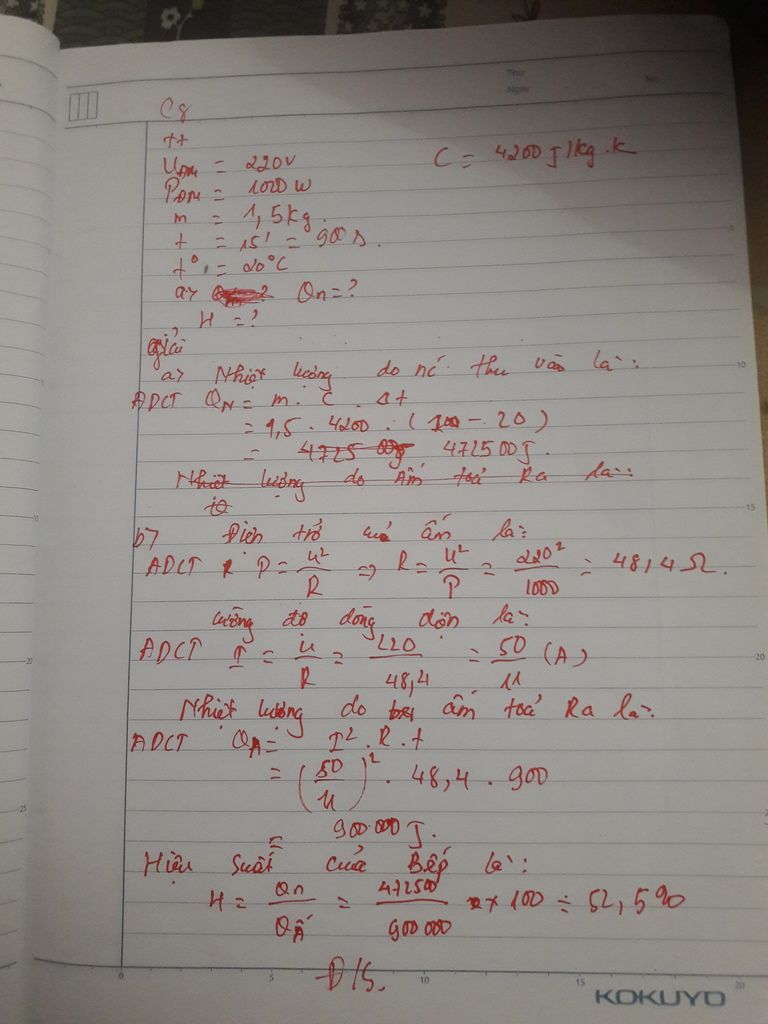 C8
tt
Uđm = 220V
C = 4200 J/kg.K
Pđm = 1000 W
m = 1,5kg.
t = 15' = 900 s.
t° = 20°C
a> Qn = ?
H = ?
giải
a> Nhiệt lượng do nc thu vào là:
ADCT QN = m . C . Δt
= 1,5 . 4200 . (100 - 20)
= 472500J 472500J.
Nhiệt lượng do ấm toả Ra là:
b> Điện trở của ấm là:
ADCT P = U²/R => R = U²/P = 220²/1000 = 48,4 Ω.
cường độ dòng điện là:
ADCT I = U/R = 220/48,4 = 50/11 (A)
Nhiệt lượng do ấm toả Ra là:
ADCT QA = I² . R . t
= (50/11)² . 48,4 . 900
= 900000 J.
Hiệu suất của Bếp là:
H = Qn/QẤ = 472500/900000 x 100 = 52,5%
Đ/S.
Thứ
Ngày
No.
5
10
15
20
25
0 5 10 15 20
KOKUYO